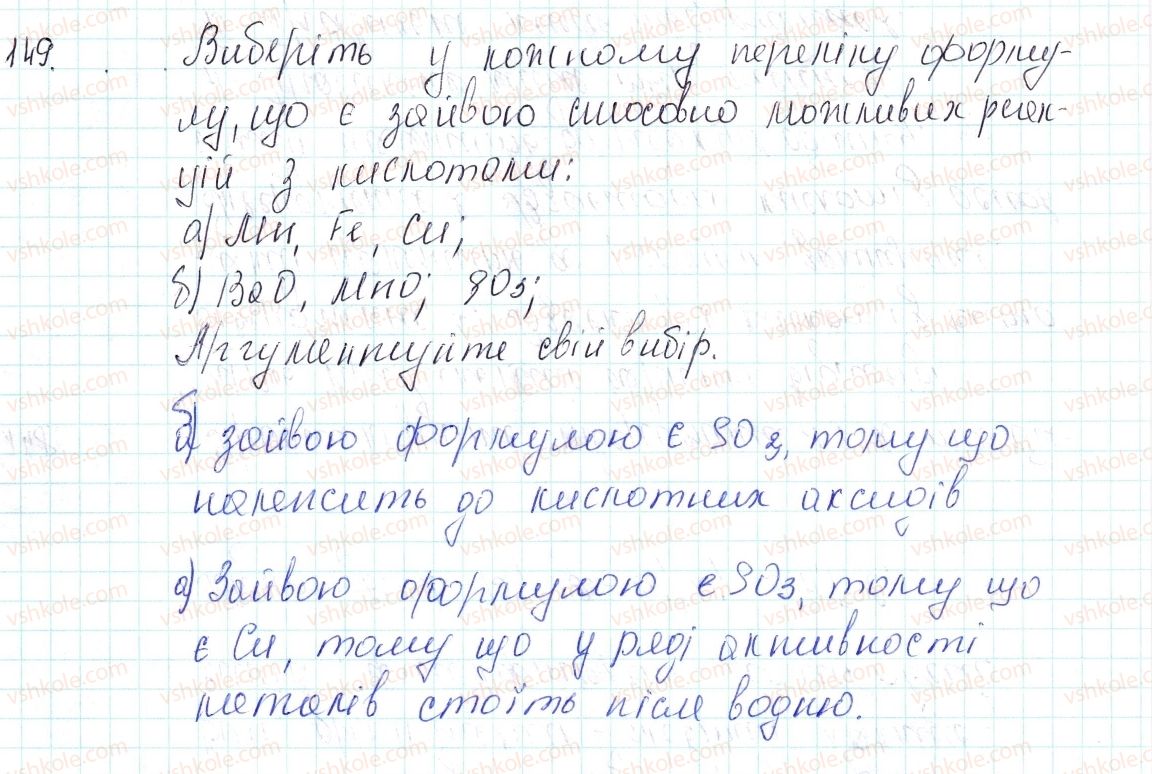 149. Виберіть у кожному переліку форму-
лу, що є зайвою стосовно можливих реак-
цій з кислотами:
а) Mn, Fe, Cu;
б) BaO, MnO; SO3;
Аргументуйте свій вибір.
б) зайвою формулою є SO3, тому що
належить до кислотних оксидів
а) Зайвою формулою є SO3, тому що
є Cu, тому що у ряді активності
металів стоїть після водню.